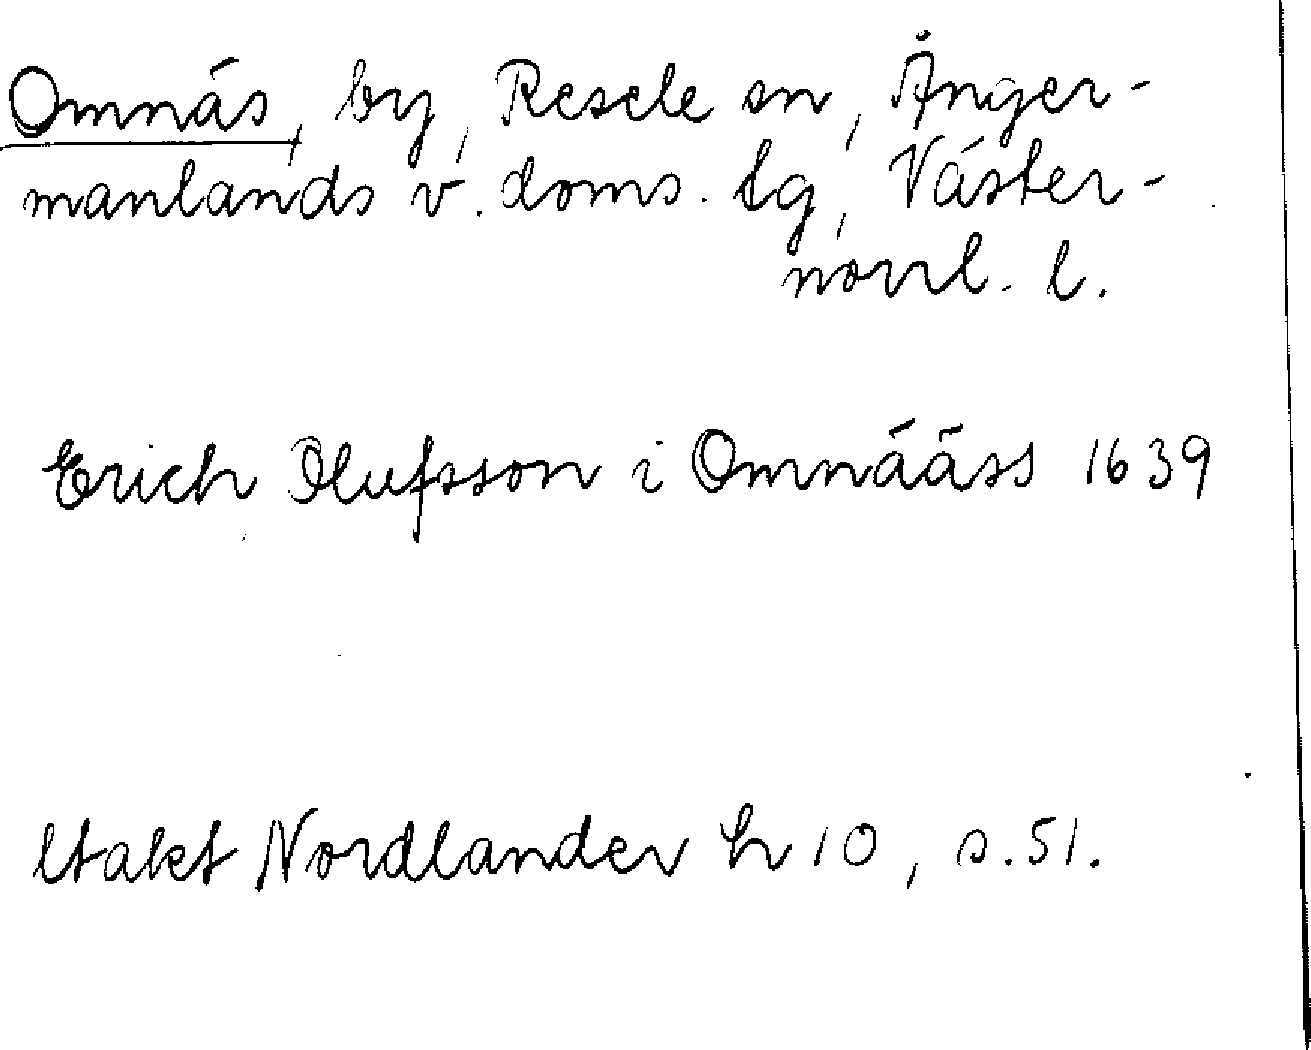 Omnäs, by, Resele sn, Ånger-
manlands v. doms. tg, Väster-
norrl. l.
Erich Olufsson i Omnääss 1639
Utakt Nordlander h 10, s. 51.